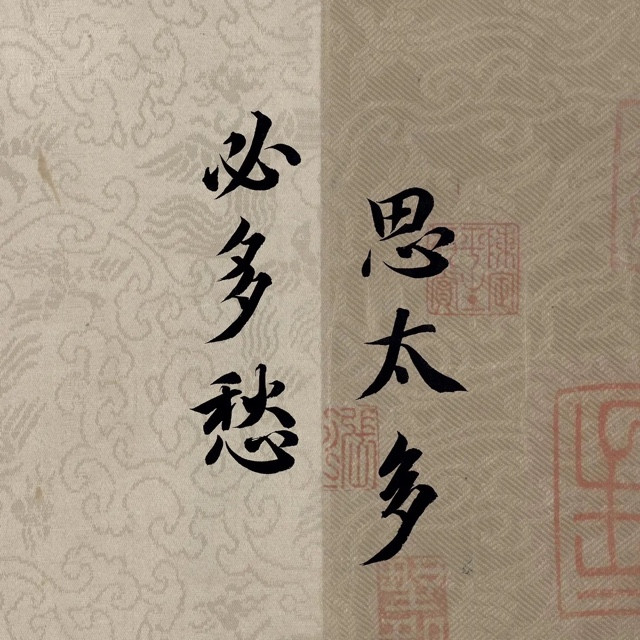 思太多
必多愁